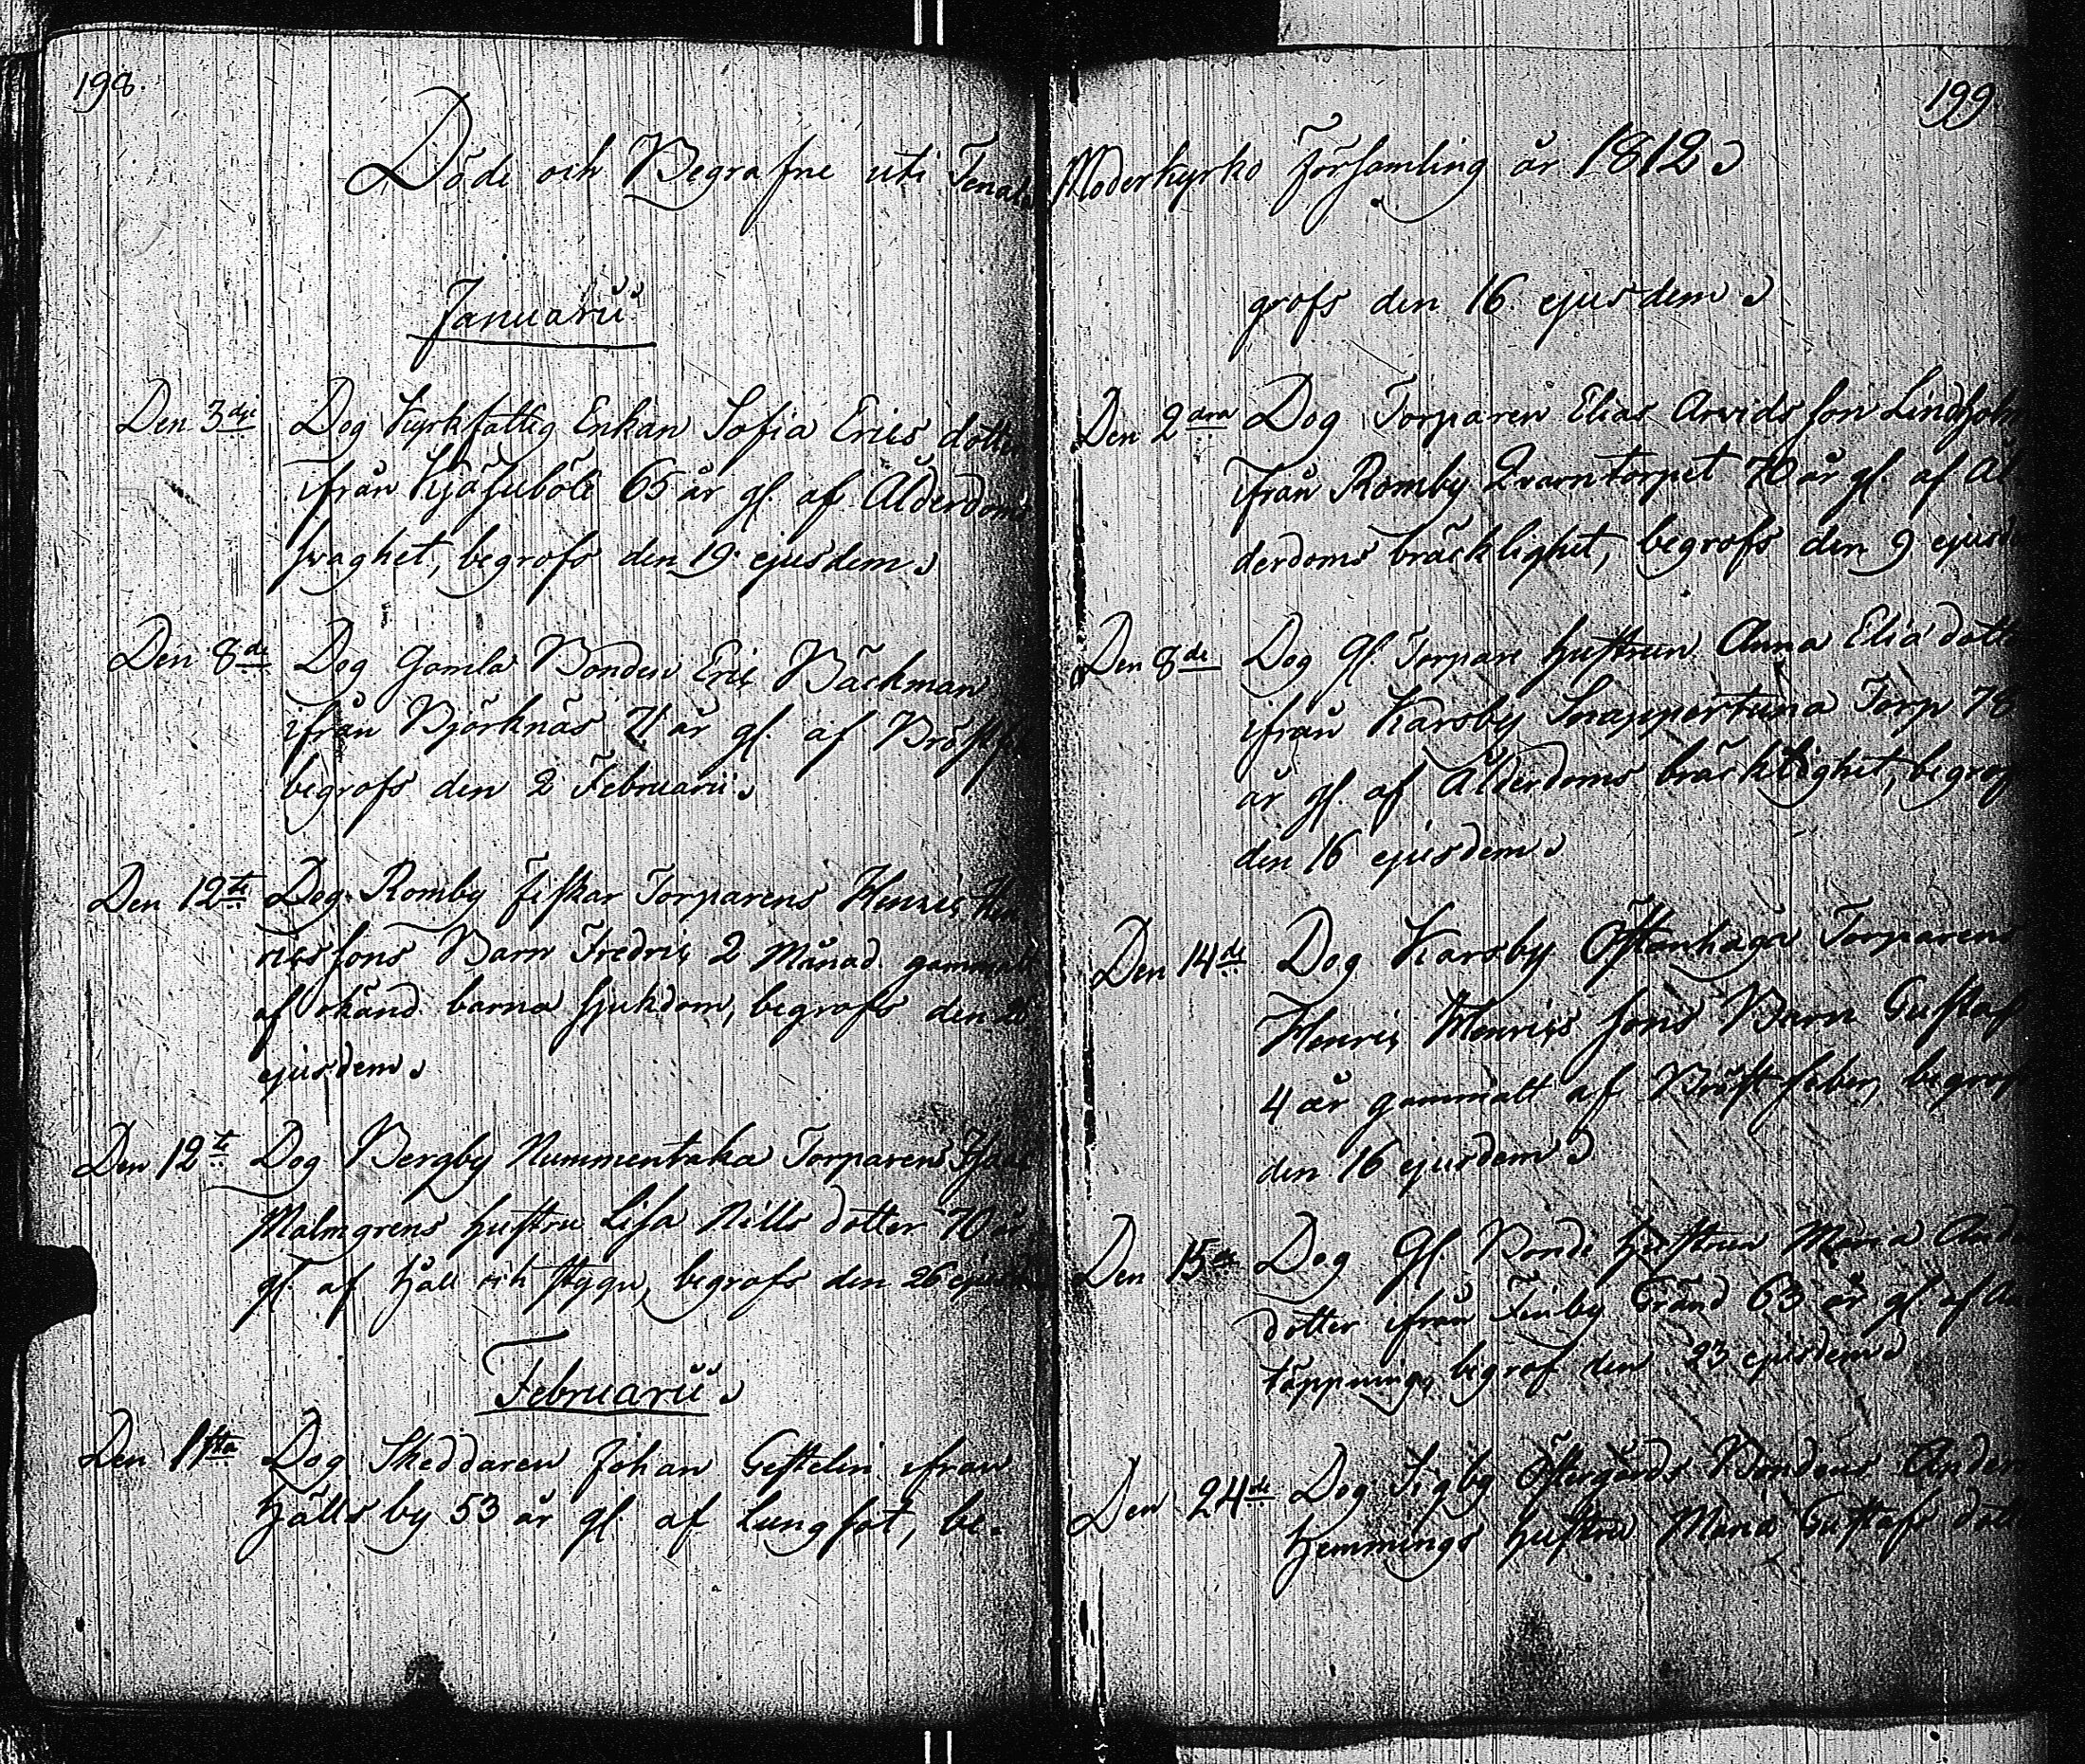 198.
Döde och Begrafne uti Tenala
Januarii
Den 3dje Dog Kyrkfattig Enkan Sofia Erics dotter
ifrån 65 år gl. af Ålderdoms
svaghet, begrofs den 19 ejusdem.
Den 8de Dog Gamla Bonden Eric Bäckman
ifrån Björknäs 71 år gl. af
begrofs den 2 Februarii.
Den 12te Dog Romby fiskar Torparens Henric Hen
rics sons Barn Fredric 2 Månad. gammalt
af okänd barna sjukdom, begrofs den 26
ejusdem.
Den 12te Dog Bergby Nummentaka Torparens
Malmgrens hustru Lisa Nills dotter 70 år
gl. af håll och stygn, begrofs den 26 ejusd
Februarii.
Den 1sta Dog Skeddaren Johan Gestelin ifrån
Hjälls by 53 år gl. af Lungsot, be-
199
Moderkyrko Församling år 1812.
grofs den 16 ejusdem.
Den 2dra Dog Torparen Elias Arvids son Lindholm
ifrån Romby Qvarntorpet 70 år gl. af Ål
derdoms bräcklighet, begrofs den 9 ejusd
Den 8de Dog gl. Torpare hustrun Anna Elia dotter
ifrån Karsby Snappertuna Torp 78
år gl. af Ålderdoms bräcklighet, begrof
den 16 ejusdem.
Den 14de Dog Karsby Östenhaga Torparens
Henric Henrics sons Barn Gustaf
4 år gammalt af Bröst feber, begrof
den 16 ejusdem.
Den 15de Dog gl. Bonde hustrun Maria Ande
dotter ifrån Finby Gränd 63 år gl. af An
täppning, begrof den 23 ejusdem.
Den 24de Dog Sigby Östergårds Bondens Anders
Hemmings hustru Maria Gustafs dotter